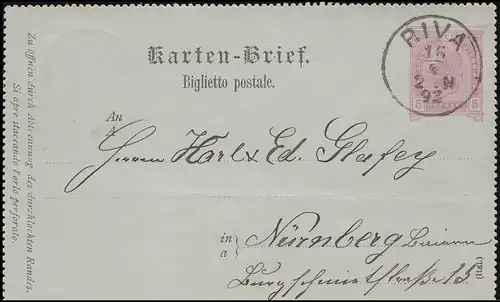 Karten-Brief.
Biglietto postale.
RIVA
15
2 N
92
5 5
An
A
Herren Karl & Ed. Glafey
in
a
Nürnberg Baiern
Burgschmietstraße 15
(Ital.)
Zu öffnen durch Abtrennung des durchlochten Randes.
Si apre staccando l'orlo perforato.